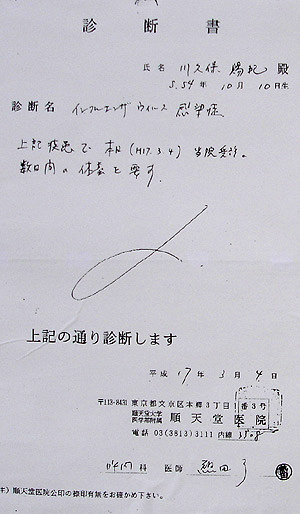 診断書
氏名 川久保 陽紀 殿
S.54年 10月 10日生
診断名 インフルエンザ ウイルス 感染症
上記疾患で 本日 (H17.3.4) 当院受診。
数日間の 休養を要す。
上記の通り診断します
平成 17年 3月 4日
〒113-8431 東京都文京区本郷3丁目1番3号
順天堂大学
医学部附属 順天堂医院
電話 03(3813)3111 内線
内科 医師
注) 順天堂医院公印の捺印有無をお確かめ下さい。